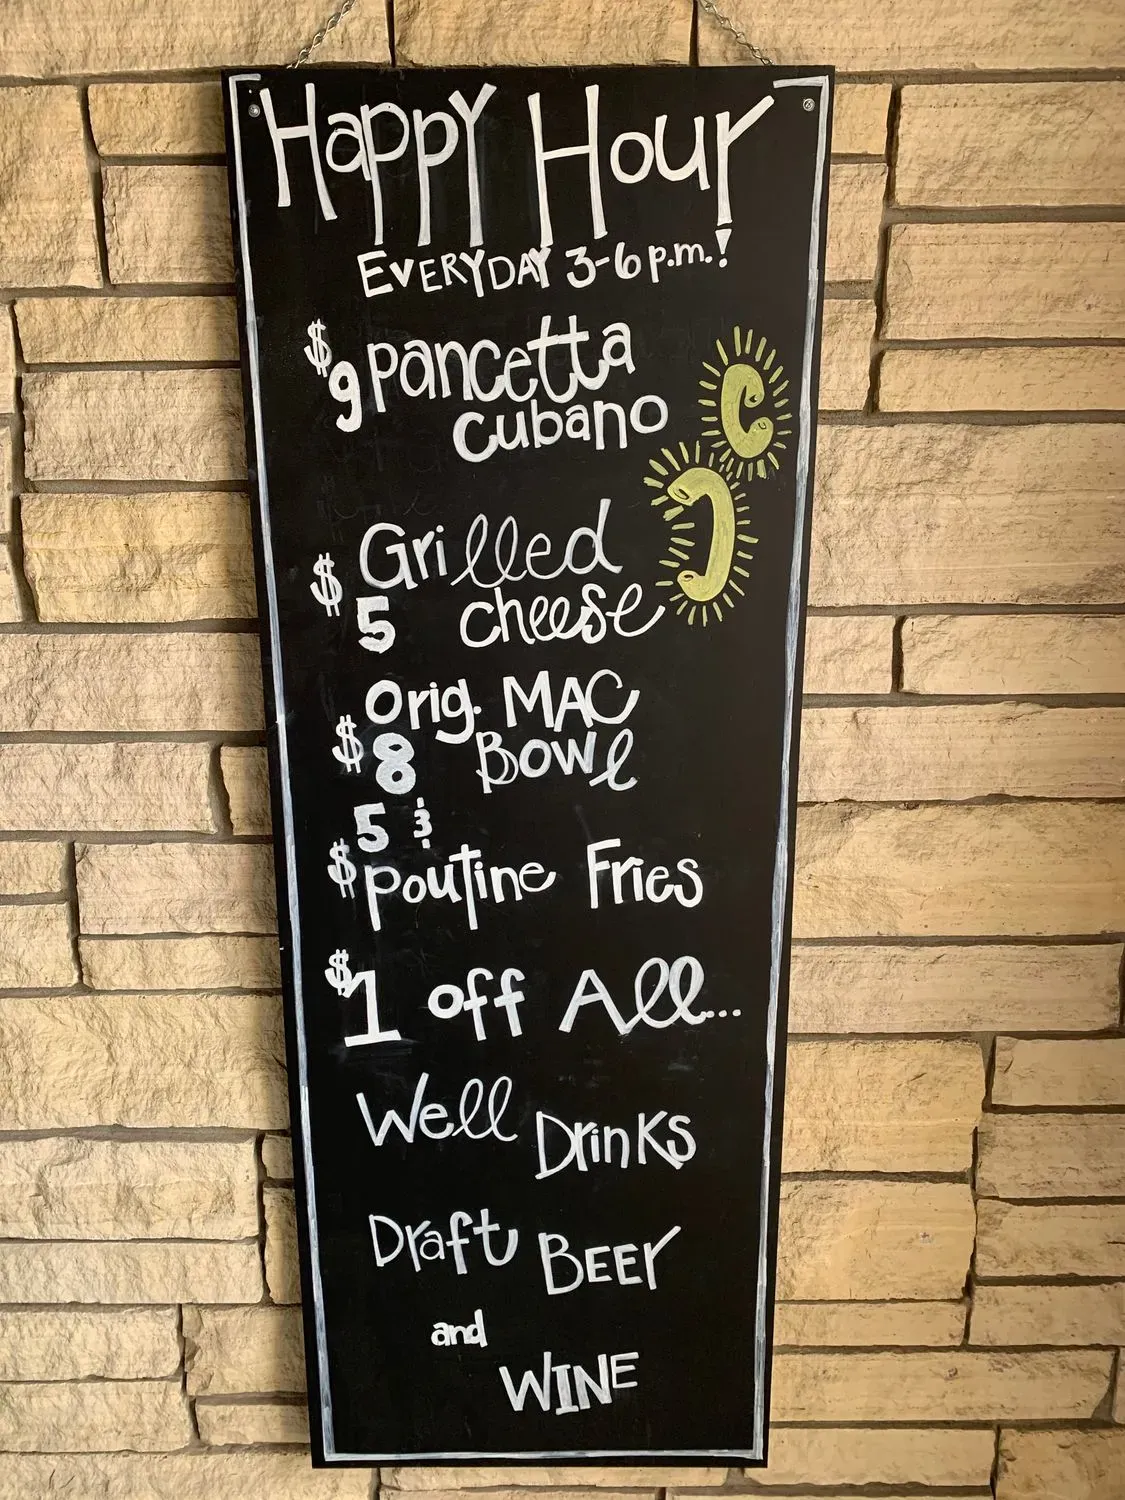 Happy Hour
EVERYDAY 3-6 p.m.!
$9 pancetta
cubano
$5 Grilled
cheese
$8 Orig. MAC
Bowl
$5 &
poutine Fries
$1 off All...
Well Drinks
Draft BEEr
and
WINE